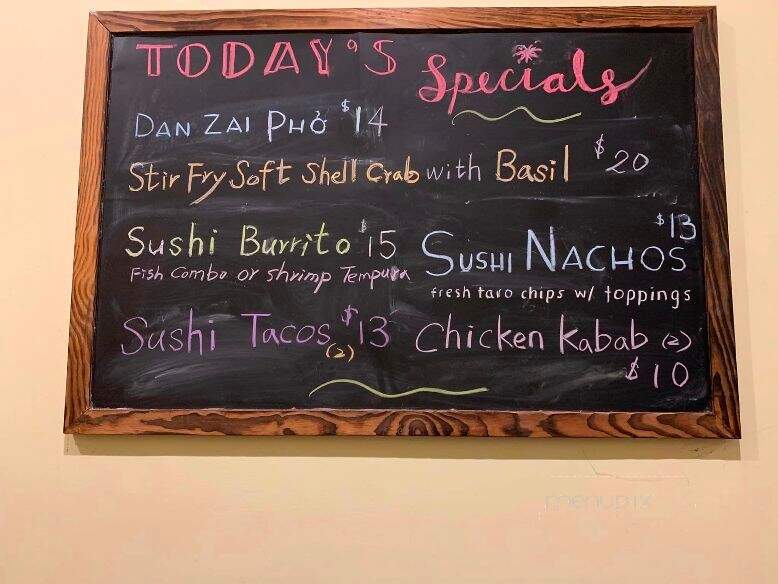 TODAY'S Specials
DAN ZAI PHỞ $14
Stir Fry Soft Shell Crab with Basil $20
Sushi Burrito $15
Fish Combo or Shrimp Tempura
$13
SUSHI NACHOS
fresh taro chips w/ toppings
Sushi Tacos $13
(2)
Chicken Kabab (2)
$10
menupix